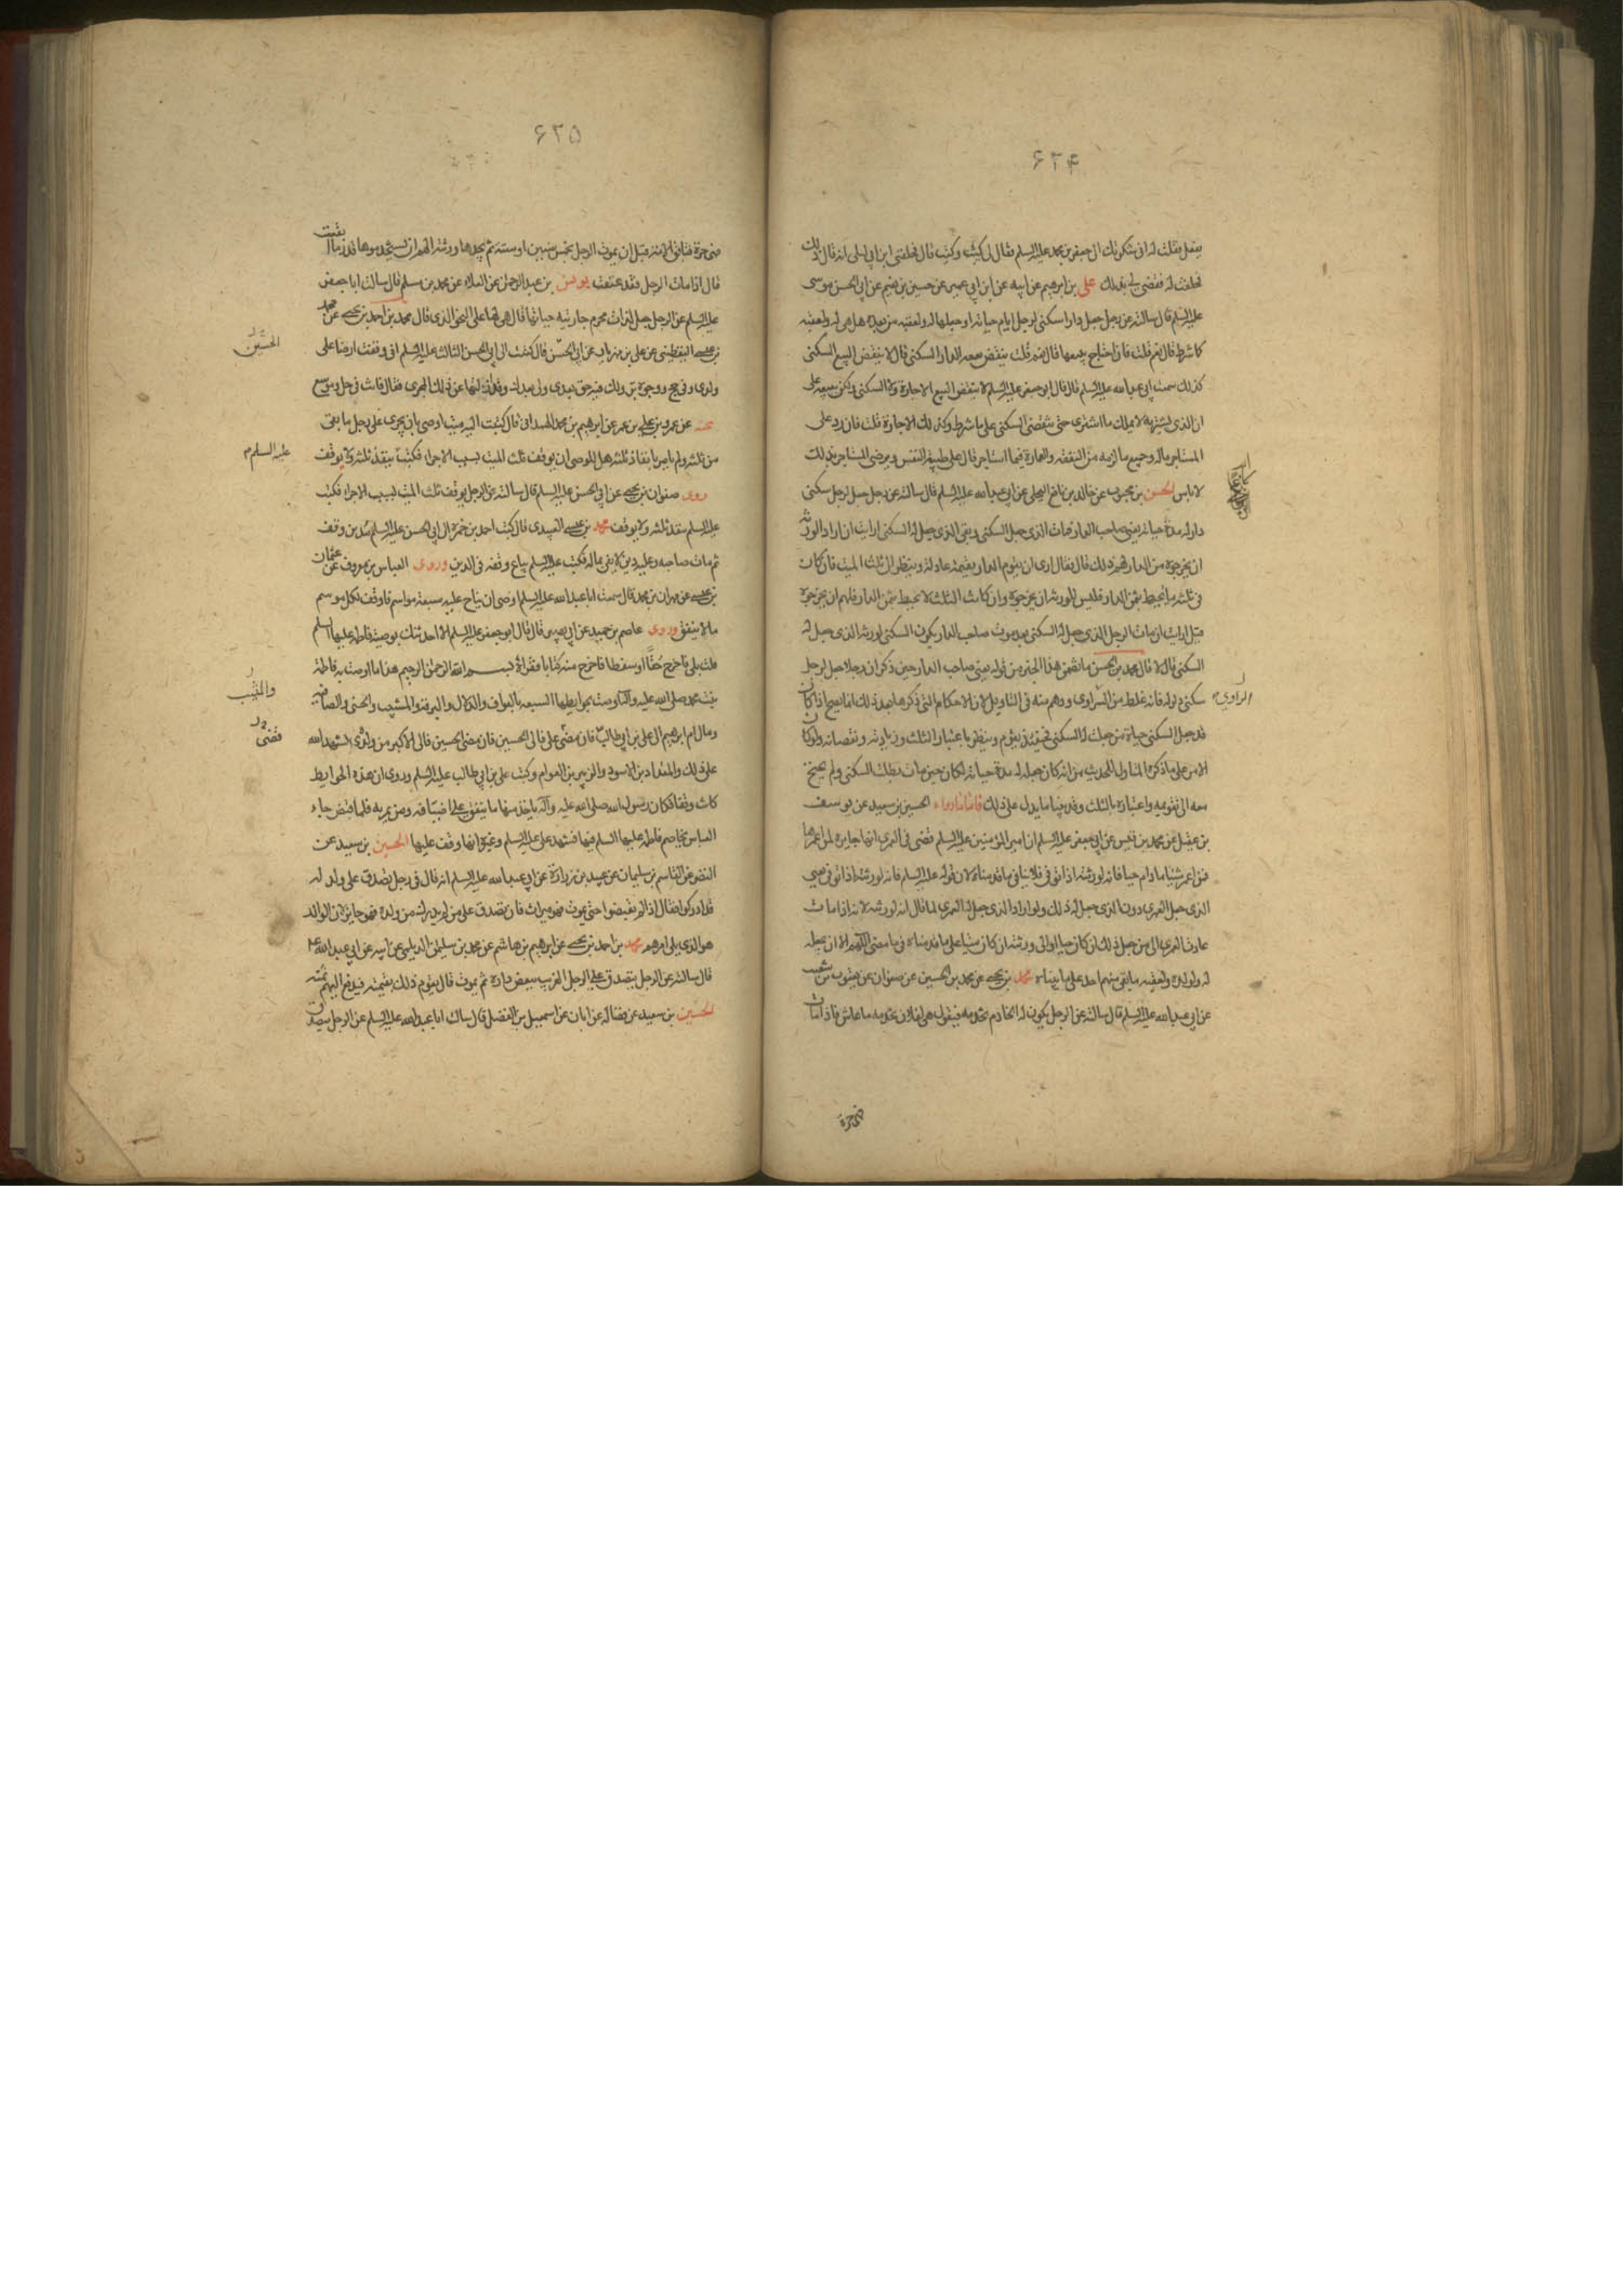 ۶۲۴
يفعل فقلت له اني شكوتك الى جعفر بن محمد عليه السلم فقال لي كيت وكيت قال فحلفني ابن ابي ليلى انه قال ذلك
فحلفت له فقضى لي بذلك على بن ابرهيم عن ابيه عن ابن ابي عمير عن حسين بن نعيم عن ابي الحسن موسى
عليه السلم قال سالته عن رجل جعل دارا سكنى لرجل ايام حياته او جعلها له ولعقبه من بعده هل هي له ولعقبه
كما شرط قال نعم قلت فان احتاج يبيعها قال نعم قلت ينقض بيعه الدار السكنى قال لا ينقض البيع السكنى
كذلك سمعت ابي عليه السلم قال قال ابو جعفر عليه السلم لا ينقض البيع الاجارة ولا السكنى ولكن يبيعه على
ان الذي يشتريه لا يملك ما اشترى حتى تنقضي السكنى على ما شرط وكذلك الاجارة قلت فان رد على
المستاجر ماله وجميع ما لزمه من النفقة والعمارة فيما استاجر قال على طيبة النفس ويرضى المستاجر بذلك
لا باس الحسن بن محبوب عن خالد بن نافع البجلي عن ابي عبدالله عليه السلم قال سالته عن رجل جعل لرجل سكنى
دار له مدة حياته يعني صاحب الدار فمات الذي جعل السكنى وبقي الذي جعل له السكنى ارايت ان اراد الورثة
ان يخرجوه من الدار لهم ذلك قال فقال ارى ان يقوم الدار بقيمة عادلة وينظر الى ثلث الميت فان كان
في ثلثه ما يحيط بثمن الدار فليس للورثة ان يخرجوه وان كان الثلث لا يحيط بثمن الدار فلهم ان يخرجوه
قيل ارايت ان مات الرجل الذي جعل له السكنى بعد موت صاحب الدار يكون السكنى لورثة الذي جعل له
السكنى قال لا قال محمد بن الحسن ما تضمن هذا الخبر من قوله يعني صاحب الدار حين ذكر ان رجلا جعل لرجل
سكنى دار له فانه غلط من الراوي ووهم منه في التاويل لان الاحكام التي ذكرها بعد ذلك انما يصح اذا كان
قد جعل السكنى حياة من جعلت له السكنى فحينئذ يقوم وينظر باعتبار الثلث وزيادته ونقصانه ولو كان
الامر على ما ذكره المتاول للحديث من انه كان جعله له مدة حياته لكان حين مات بطلت السكنى ولم يحتج
معه الى تقويمه واعتباره بالثلث وقد بينا ما يدل على ذلك فاما ما رواه الحسين بن سعيد عن يوسف
بن عقيل عن محمد بن قيس عن ابي جعفر عليه السلم ان امير المؤمنين عليه السلم قضى في العمرى انها جايزة لمن اعمرها
فمن اعمر شيئا ما دام حيا فانه لورثته اذا توفي فلا ينافي ما قدمناه لان قوله عليه السلم فانه لورثته اذا توفي يعني
الذي جعل العمرى دون الذي جعل له ذلك ولو اراد الذي جعل له العمرى لما قال انه لورثته لانه اذا مات
عادت العمرى الى من جعل ذلك ان كان حيا او الى ورثته ان كان ميتا على ما قدمناه في ما مضى اللهم الا ان يجعله
له ولولده ولعقبه ما بقي منهم احد على ما بيناه محمد بن يحيى عن محمد بن الحسين عن صفوان عن يعقوب بن شعيب
عن ابي عبدالله عليه السلم قال سالته عن الرجل يكون له الخادم تخدمه فيقول هي لفلان تخدمه ما عاش فاذا مات
الراوي
فهي حرة
۶۲۵
فهي حرة فتابق الامة قبل ان يموت الرجل بخمس سنين او ستة ثم يجدها ورثته الهم ان يستخدموها قدر ما ابقت
قال اذا مات الرجل فقد عتقت يونس بن عبد الرحمن عن العلاء عن محمد بن مسلم قال سالت ابا جعفر
عليه السلم عن الرجل جعل لذات محرم جاريته حياتها قال هي لها على النحو الذي قال محمد بن احمد بن يحيى عن محمد
بن عيسى اليقطيني عن علي بن مهزيار عن ابي الحسن قال كتبت الى ابي الحسن الثالث عليه السلم اني وقفت ارضا على
ولدي وفي حج ووجوه بر ولك فيه حق بعدي ولي بعدك وقد ازلتها عن ذلك المجرى فقال انت في حل وموسع
عنه عن عمرو بن علي بن عمر عن ابرهيم بن محمد الهمداني قال كتبت اليه ميت اوصى بان يجرى على رجل ما بقي
من ثلثه ولم يامر بانفاذ ثلثه هل للوصي ان يوقف ثلث الميت بسبب الاجرا فكتب ينفذ ثلثه ولا يوقف
روى صفوان بن يحيى عن ابي الحسن عليه السلم قال سالته عن الرجل يوقف ثلث الميت بسبب الاجرا فكتب
عليه السلم ينفذ ثلثه ولا يوقف محمد بن عيسى العبيدي قال كتب احمد بن حمزة الى ابي الحسن عليه السلم مدبن وقف
ثم مات صاحبه وعليه دين لا يفي ماله فكتب عليه السلم يباع وقفه في الدين وروى العباس بن معروف عن عثمان
بن عيسى عن مهران بن محمد قال سمعت ابا عبدالله عليه السلم اوصى ان يناح عليه سبعة مواسم فاوقف لكل موسم
مالا ينفق وروى عاصم بن حميد عن ابي بصير قال قال ابو جعفر عليه السلم الا احدثك بوصية فاطمة عليها السلم
قلت بلى فاخرج حُقًّا او سفطا فاخرج منه كتابا فقراه بسم الله الرحمن الرحيم هذا ما اوصت به فاطمة
بنت محمد صلى الله عليه وآله اوصت بحوايطها السبعة بالعواف والدلال والبرقة والمشيب والحسنى والصافية
ومال ام ابرهيم الى علي بن ابي طالب فان مضى علي فالى الحسين فان مضى الحسين فالى الاكبر من ولدي اشهد الله
على ذلك والمقداد بن الاسود والزبير بن العوام وكتب علي بن ابي طالب عليه السلم وروى ان هذه الحوايط
كانت وقفا فكان رسول الله صلى الله عليه وآله ياخذ منها ما ينفق على اضيافه ومن يمر به فلما قبض جاء
العباس يخاصم فاطمة عليها السلم فيها فشهد علي عليه السلم وغيره انها وقف عليها الحسين بن سعيد عن
النضر عن القاسم بن سليمان عن عبيد بن زرارة عن ابي عبدالله عليه السلم انه قال في رجل تصدق على ولد له
قد ادركوا فقال اذا لم يقبضوا حتى يموت فهو ميراث فان تصدق على من لم يدرك من ولده فهو جايز لان الوالد
هو الذي يلي امرهم محمد بن احمد بن يحيى عن ابرهيم بن هاشم عن محمد بن سليمن الديلمي عن ابيه عن ابي عبدالله ع
قال سالته عن الرجل يتصدق على الرجل الغريب ببعض داره ثم يموت قال يقوم ذلك بقيمته فيدفع اليهم ثمنه
الحسين بن سعيد عن فضالة عن ابان عن اسمعيل بن الفضل قال سالت ابا عبدالله عليه السلم عن الرجل يتصدق
الحسين
عليه السلام
والمثيب